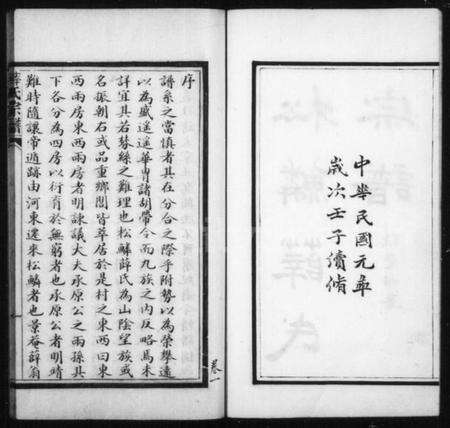 中華民國元年
歲次壬子續脩
序
譜系之當慎者其在分合之際乎附勢以為榮攀遠
以為盛遙遙華胄諸胡帶令而九族之內反略焉未
詳宜其若棼絲之難理也松鱗薛氏為山陰望族或
名振朝右或品重鄉閭皆萃居於是村之東西曰東
西兩房東西兩房者明諫議大夫承原公之兩孫其
下各分為四房以衍育於無窮者也承原公者明靖
難時隨讓帝遁跡由河東遷來松鱗者也景菴薛翁
薛氏宗譜
卷一